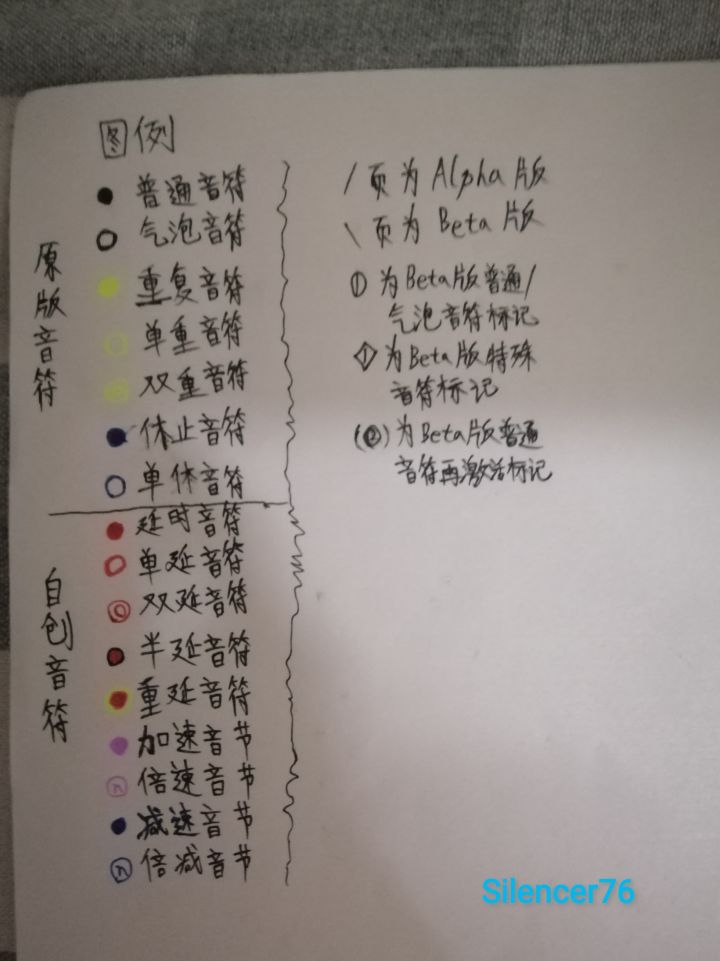 图例
原版音符
普通音符
气泡音符
重复音符
单重音符
双重音符
休止音符
单休音符
自创音符
延时音符
单延音符
双延音符
半延音符
重延音符
加速音节
倍速音节
减速音节
倍减音节
/ 页为 Alpha 版
\ 页为 Beta 版
① 为Beta版普通/
气泡音符标记
① 为Beta版特殊
音符标记
(②) 为Beta版普通
音符再激活标记
Silencer76